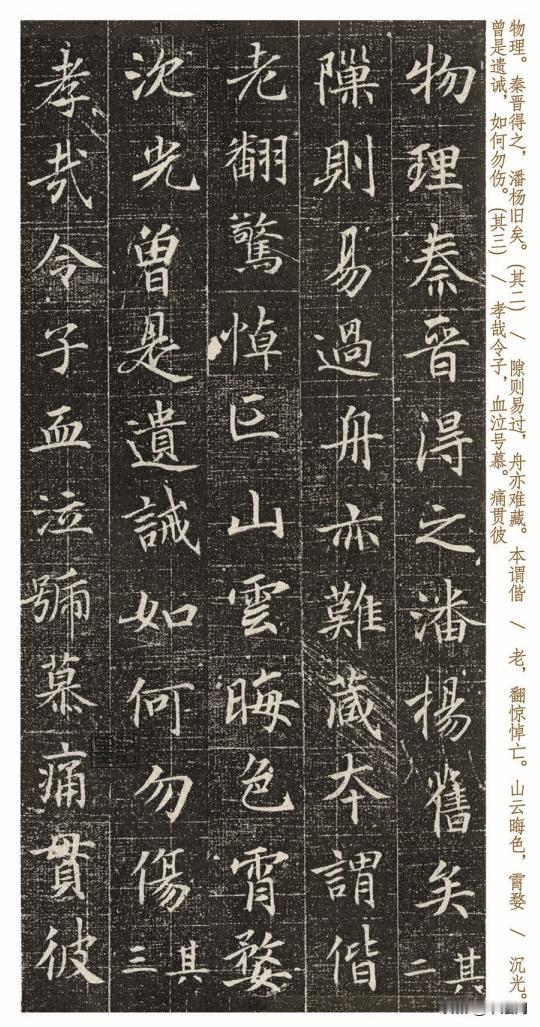 物理。秦晋得之，潘杨旧矣。（其二） / 隙则易过，舟亦难藏。本谓偕 / 老，翻惊悼亡。山云晦色，霄婺 / 沉光。
曾是遗诫，如何勿伤。（其三） / 孝哉令子，血泣号慕。痛贯彼
物理秦晉得之潘楊舊矣其二
隟則易過舟亦難藏本謂偕
老翻驚悼亡山雲晦色霄婺
沈光曾是遺誡如何勿傷其三
孝哉令子血泣號慕痛貫彼